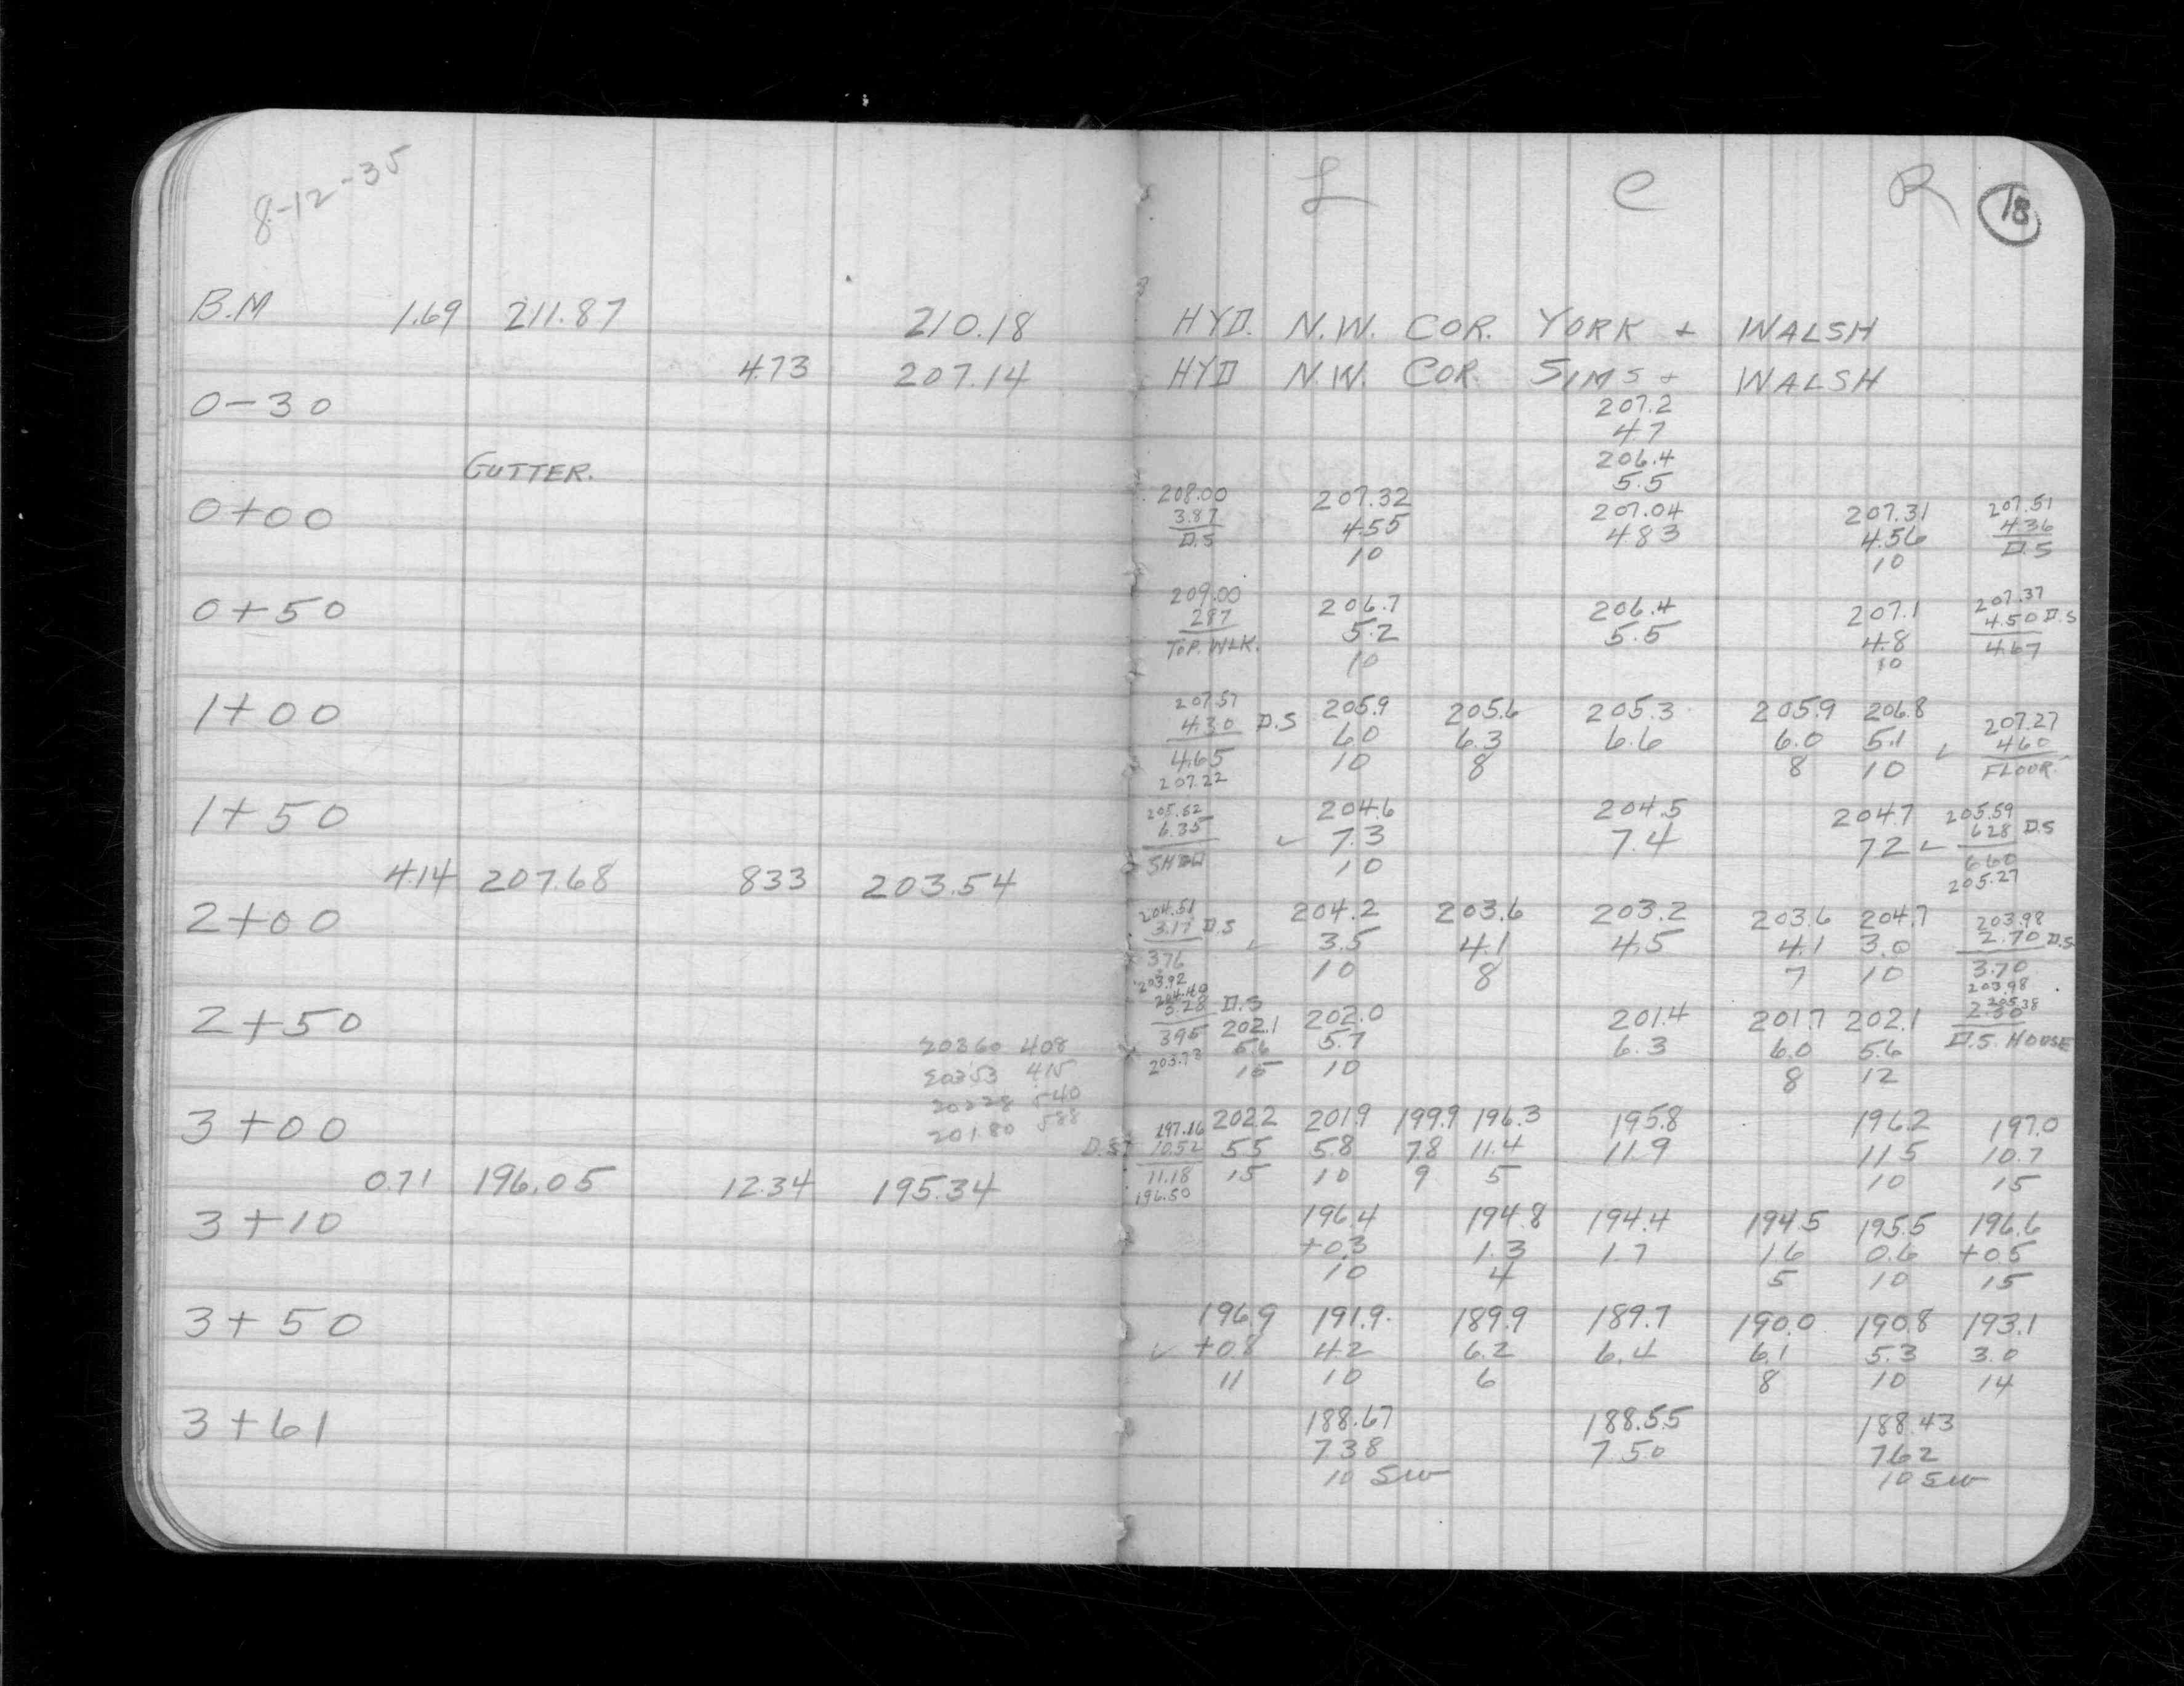 8-12-35
L C R 18
B.M 1.69 211.87 210.18 HYD. N.W. COR. YORK + WALSH
4.73 207.14 HYD N.W. COR. SIMS + WALSH
0-30 207.2
4.7
GUTTER. 206.4
5.5
0+00 208.00 207.32 207.04 207.31 207.51
3.87 4.55 4.83 4.56 4.36
D.S 10 10 D.S
0+50 209.00 206.7 206.4 207.1 207.37
2.87 5.2 5.5 4.8 4.50 D.S
TOP. WLK. 10 10 4.67
1+00 207.57 205.9 205.6 205.3 205.9 206.8 207.27
4.30 D.S 6.0 6.3 6.6 6.0 5.1 ✓ 4.60
4.65 10 8 8 10 FLOOR.
207.22
1+50 205.52 204.6 204.5 204.7 205.59
6.35 ✓ 7.3 7.4 7.2 ✓ 6.28 D.S
10 6.60
4.14 207.68 8.33 203.54 205.27
2+00 204.51 204.2 203.6 203.2 203.6 204.7 203.98
3.17 D.S ✓ 3.5 4.1 4.5 4.1 3.0 2.70 D.S
3.76 10 8 7 10 3.70
203.92 203.98
2+50 3.28 D.S 205.38
395 202.1 202.0 201.4 201.7 202.1 2.30
203.73 5.6 5.7 6.3 6.0 5.6 D.S. HOUSE
15 10 8 12
20360 408
20353 415
20228 540
20180 588
3+00 197.16 202.2 201.9 199.9 196.3 195.8 196.2 197.0
D.S 10.52 5.5 5.8 7.8 11.4 11.9 11.5 10.7
11.18 15 10 9 5 10 15
196.50
0.71 196.05 12.34 195.34
3+10 196.4 194.8 194.4 194.5 195.5 196.6
+0.3 1.3 1.7 1.6 0.6 +0.5
10 4 5 10 15
3+50 196.9 191.9 189.9 189.7 190.0 190.8 193.1
✓ +0.8 4.2 6.2 6.4 6.1 5.3 3.0
11 10 6 8 10 14
3+61 188.67 188.55 188.43
7.38 7.50 7.62
10 SW 10 SW